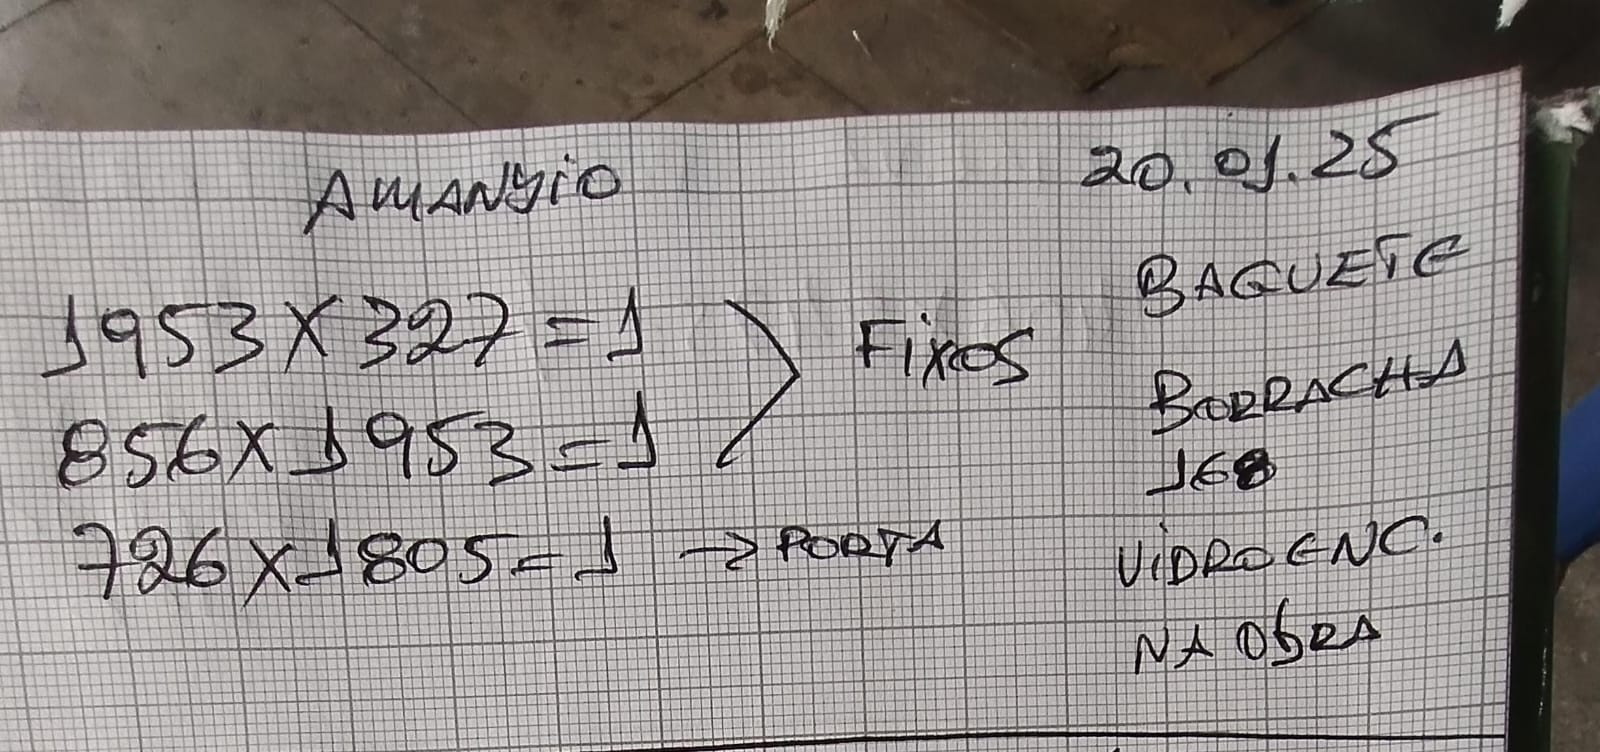 AMANDIO
20.01.25
1953 X 327 = 1
856 X 1953 = 1
FixOS
726 X 1805 = 1 → PORTA
BAGUETE
BORRACHA
168
ViDRO ENC.
NA ObRA